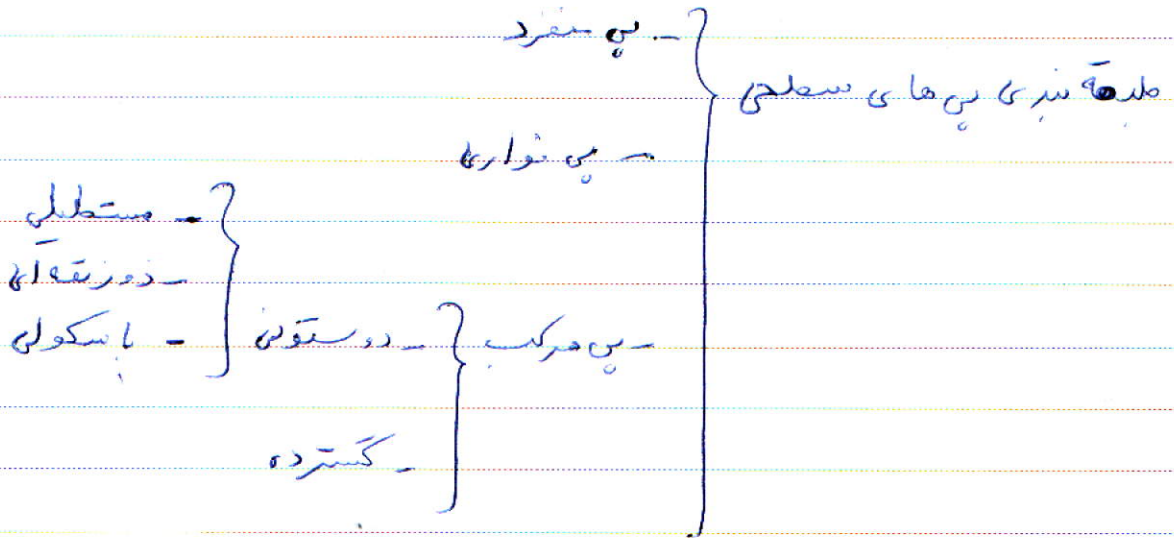 طبقه بندی پی های سطحی
- پی منفرد
- پی نواری
- پی مرکب
- دو ستونی
- مستطیلی
- ذوزنقه ای
- باسکولی
- گسترده